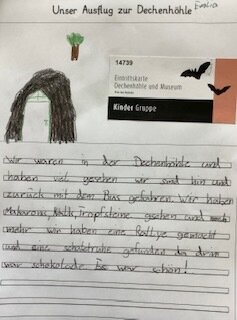 Unser Ausflug zur Dechenhöhle Emilia
14739
Eintrittskarte
Dechenhöhle und Museum
Kinder Gruppe
Wir waren in der Dechenhöhle und
haben viel gesehen wir sind hin und
zurück mit dem Bus gefahren. Wir haben
Makarons, Tropfsteine gsehen und
mehr wir haben eine Rallye gemacht
und eine schatztruhe gefunden da drin
war schokolade. Es war schön!